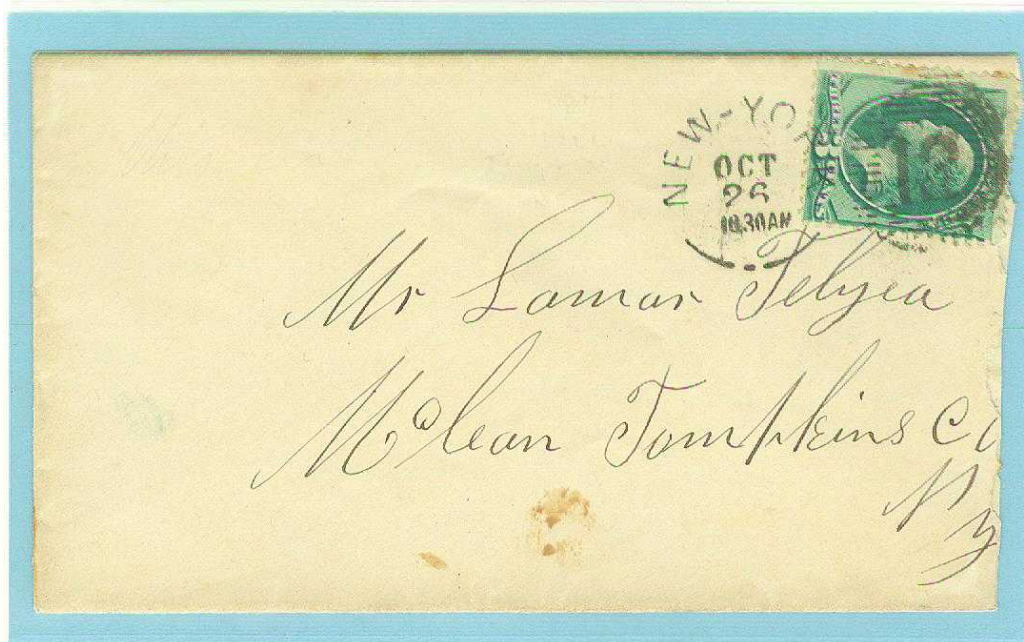 NEW-YORK
OCT
26
10.30AM
12
Mr Lamar Telyea
McLean Tompkins Co
NY